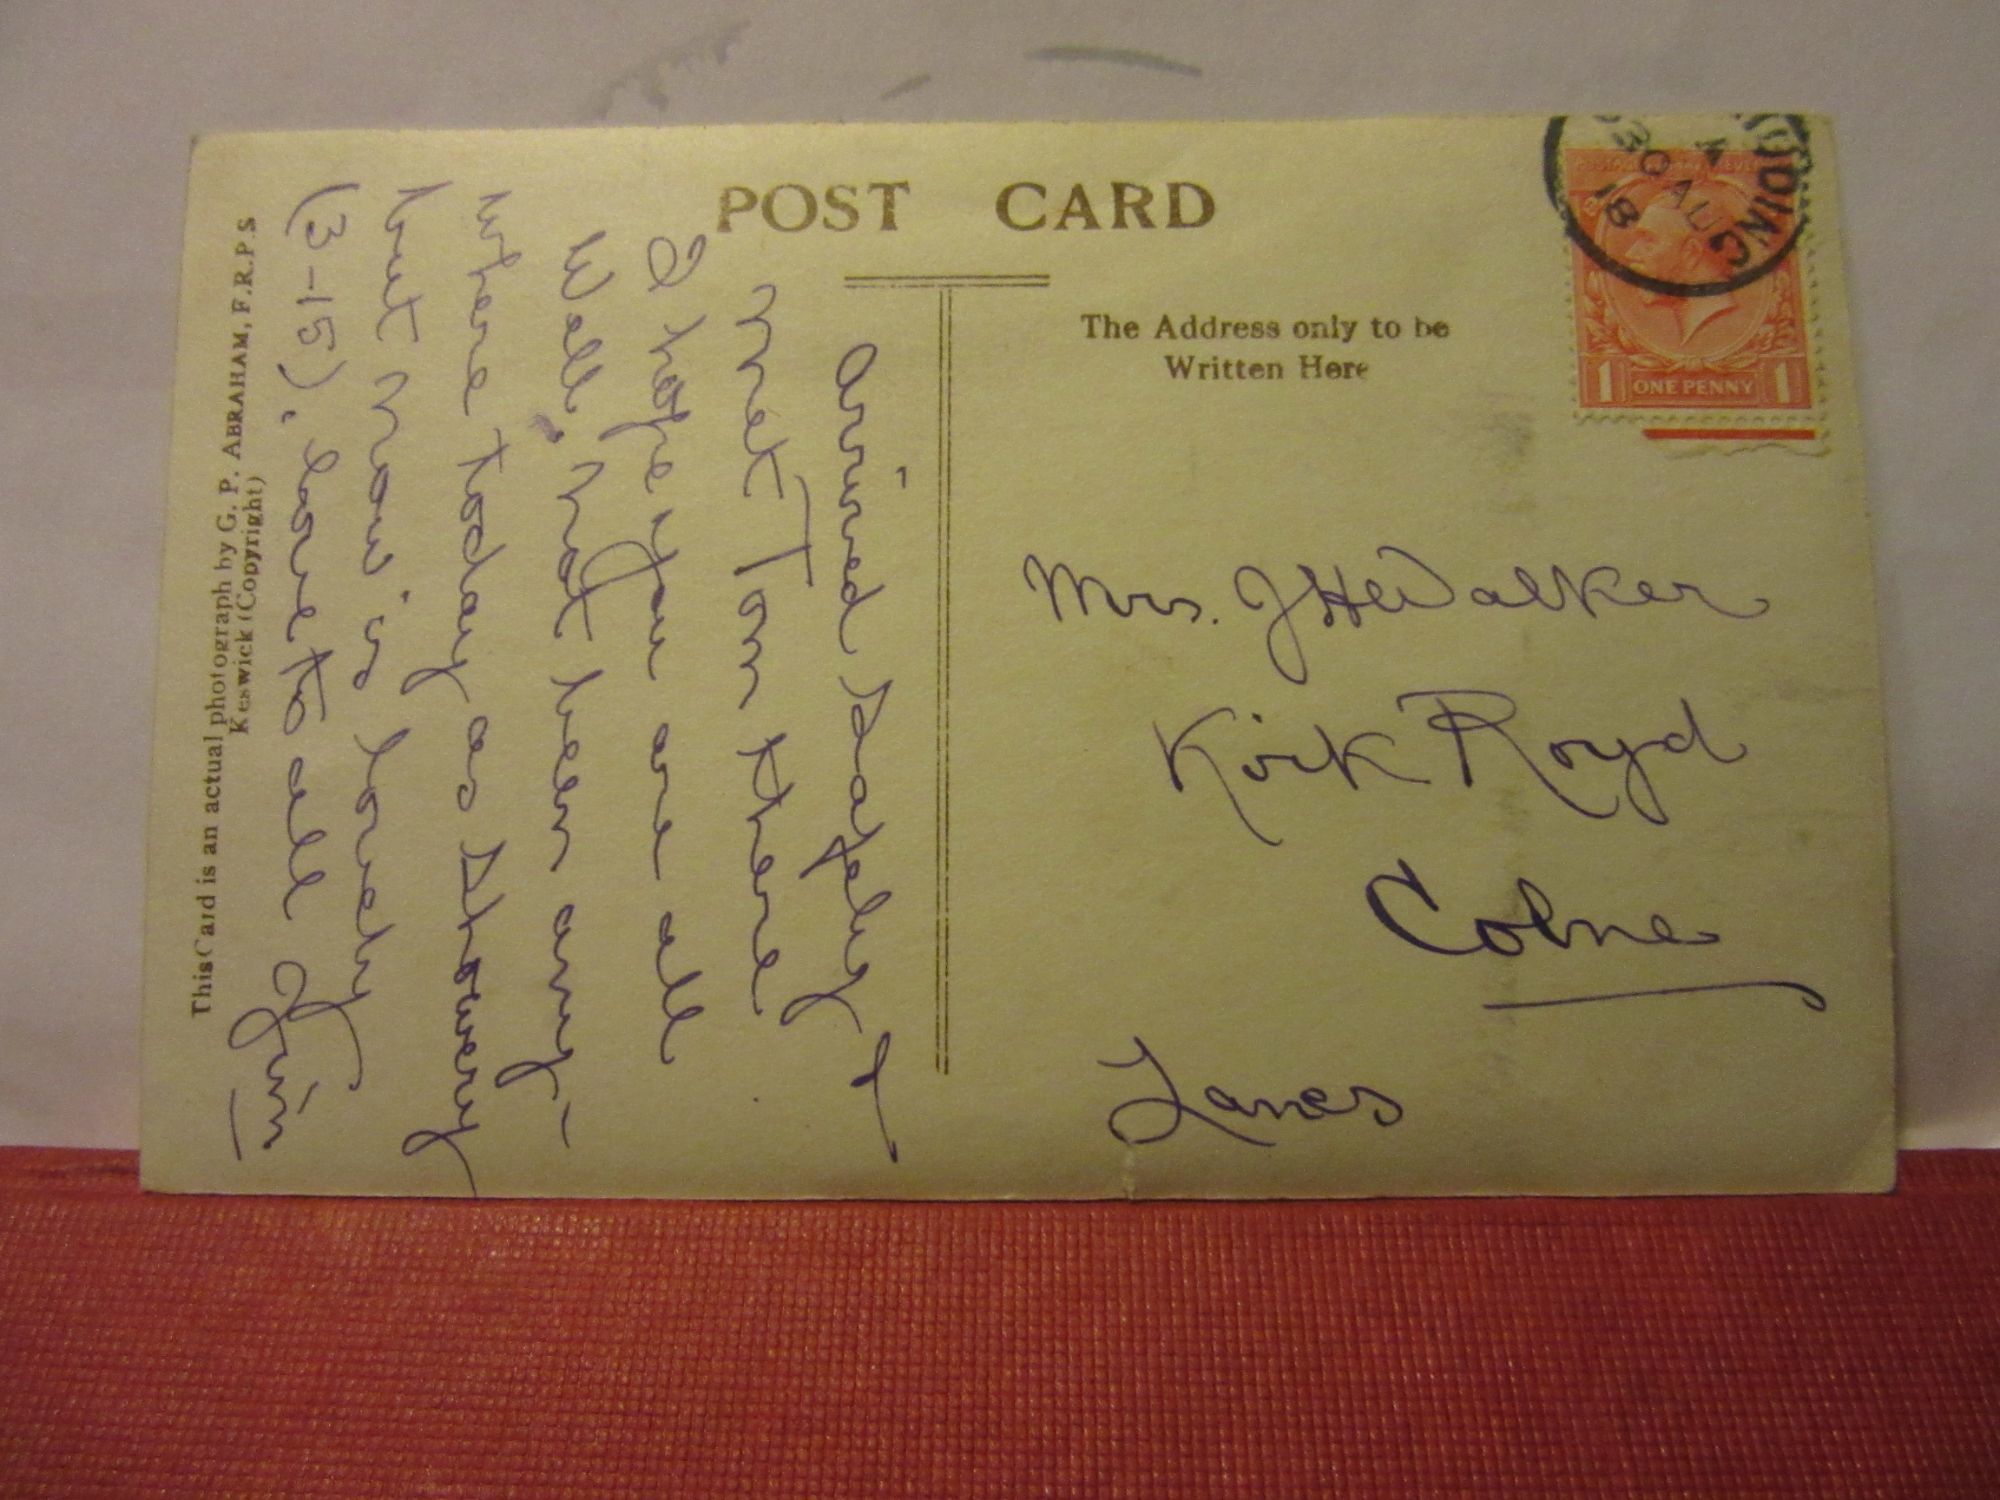 POST CARD
The Address only to be
Written Here
ONE PENNY
1 1
30 AU
18
Arrived Safely &
met Tom there
I hope you are all
Well, not been any-
where today as Showery
but now is lovely
(3-15). Love to all Jim
Mrs. J H W Walker
Kirk Royd
Colne
Lancs
This Card is an actual photograph by G. P. ABRAHAM, F.R.P.S
Keswick (Copyright)